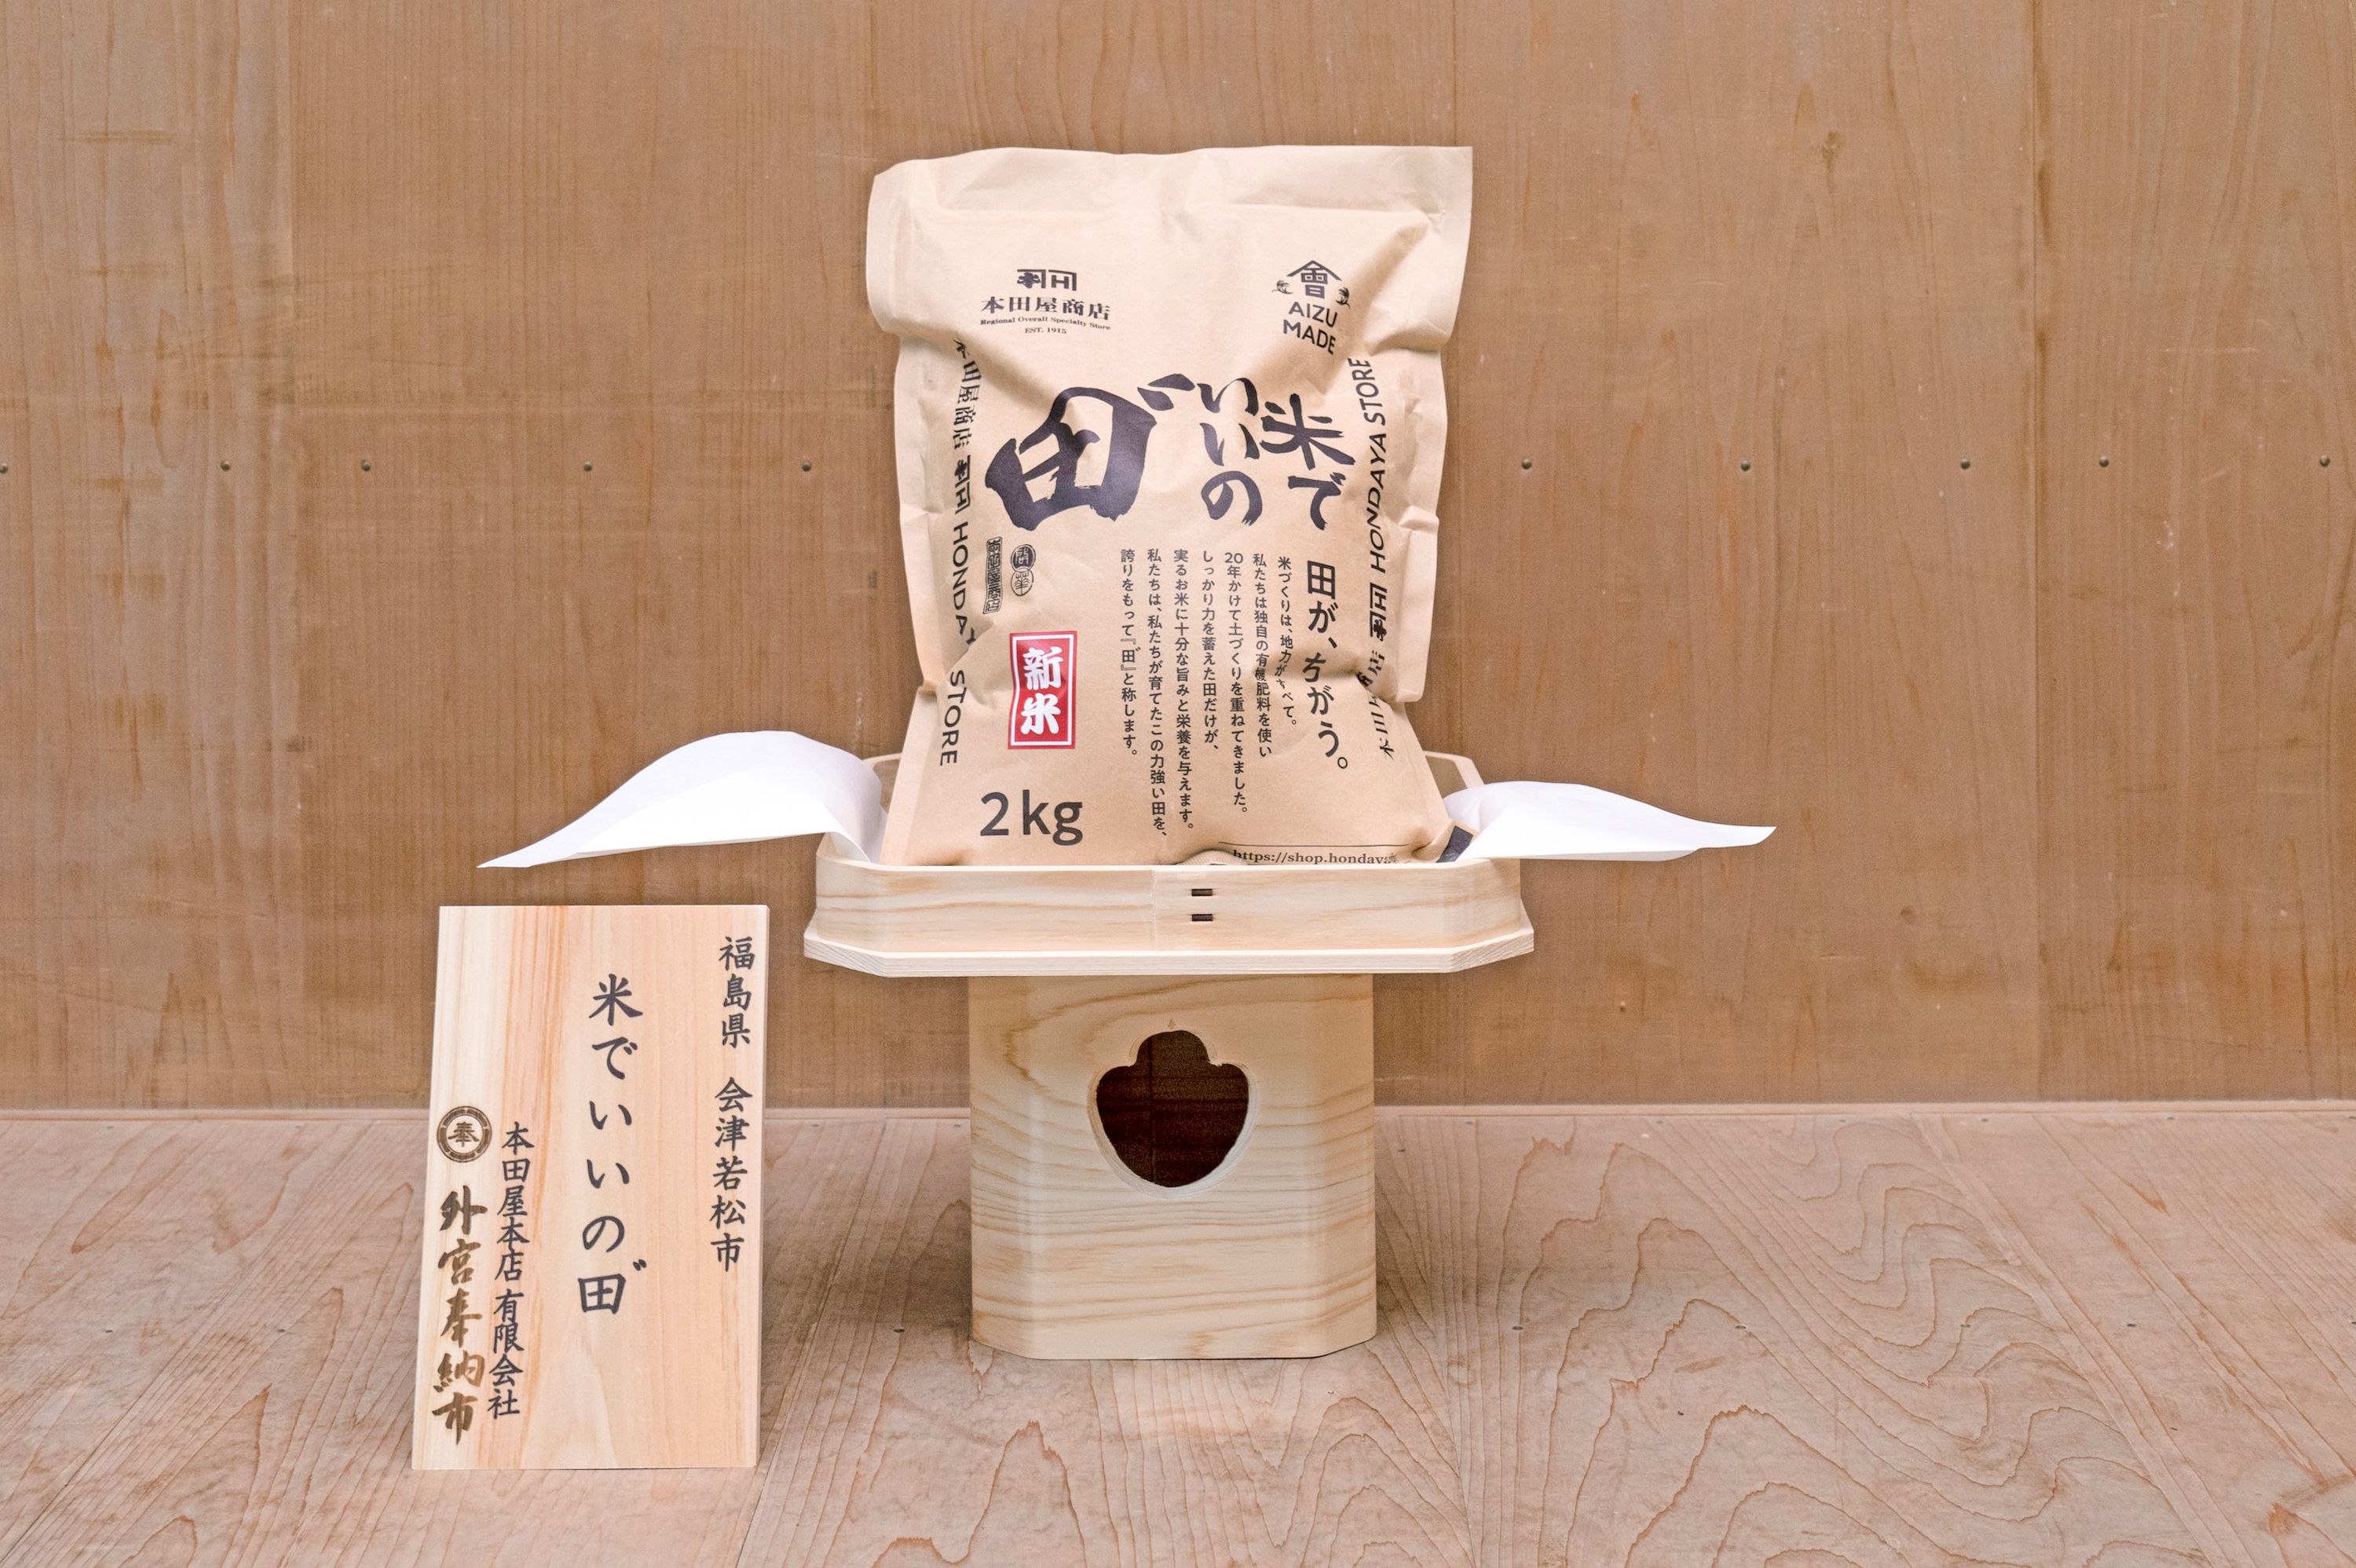 本田屋商店
Regional Overall Specialty Store
EST. 1915
會
AIZU
MADE
米で
いいの
田゛
田が、ちがう。
米づくりは、地力がすべて。
私たちは独自の有機肥料を使い
20年かけて土づくりを重ねてきました。
しっかり力を蓄えた田だけが、
実るお米に十分な旨みと栄養を与えます。
私たちは、私たちが育てたこの力強い田を、
誇りをもって『田゛』と称します。
本田屋商店 HONDAYA STORE
HONDAYA STORE
新米
2kg
https://shop.honday
福島県 会津若松市
米でいいの田゛
本田屋本店 有限会社
奉
外宮奉納市